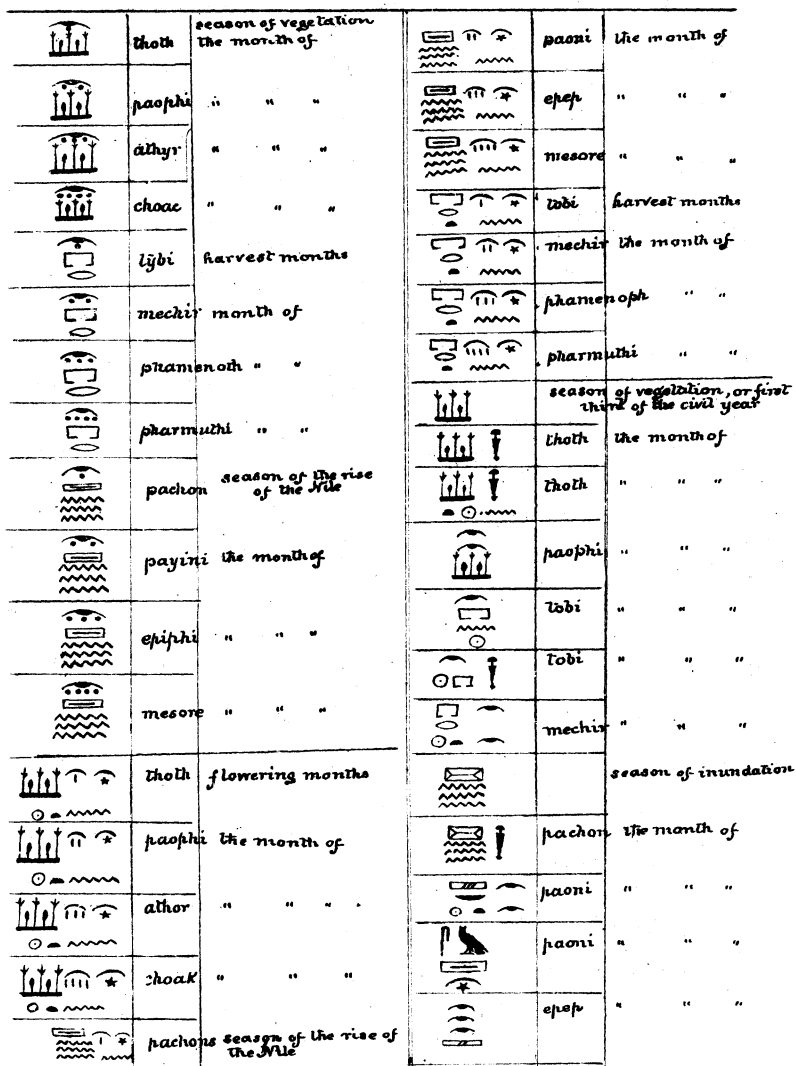 season of vegetation
thoth the month of
paophi " " "
athyr " " "
choac " " "
tybi harvest months
mechir month of
phamenoth " "
pharmuthi " "
pachon season of the rise
of the Nile
payini the month of
epiphi " " "
mesore " " "
thoth flowering months
paophi the month of
athor " " " "
choak " " "
pachons season of the rise of
the Nile
paoni the month of
epep " " "
mesore " " "
tobi harvest months
mechir the month of
phamenoph " "
pharmuthi " "
season of vegetation, or first
third of the civil year
thoth the month of
thoth " " "
paophi " " "
tobi " " "
tobi " " "
mechir " " "
season of inundation
pachon the month of
paoni " " "
paoni " " "
epep " " "